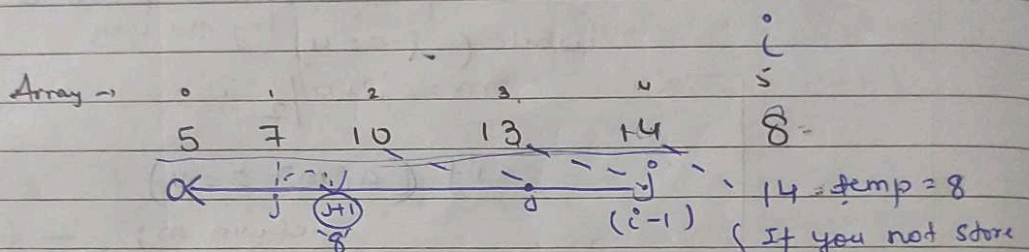 i
Array → 0 1 2 3 4 5
5 7 10 13 14 8
0 j j+1 j j 14 temp = 8
8 (i-1) ( If you not store